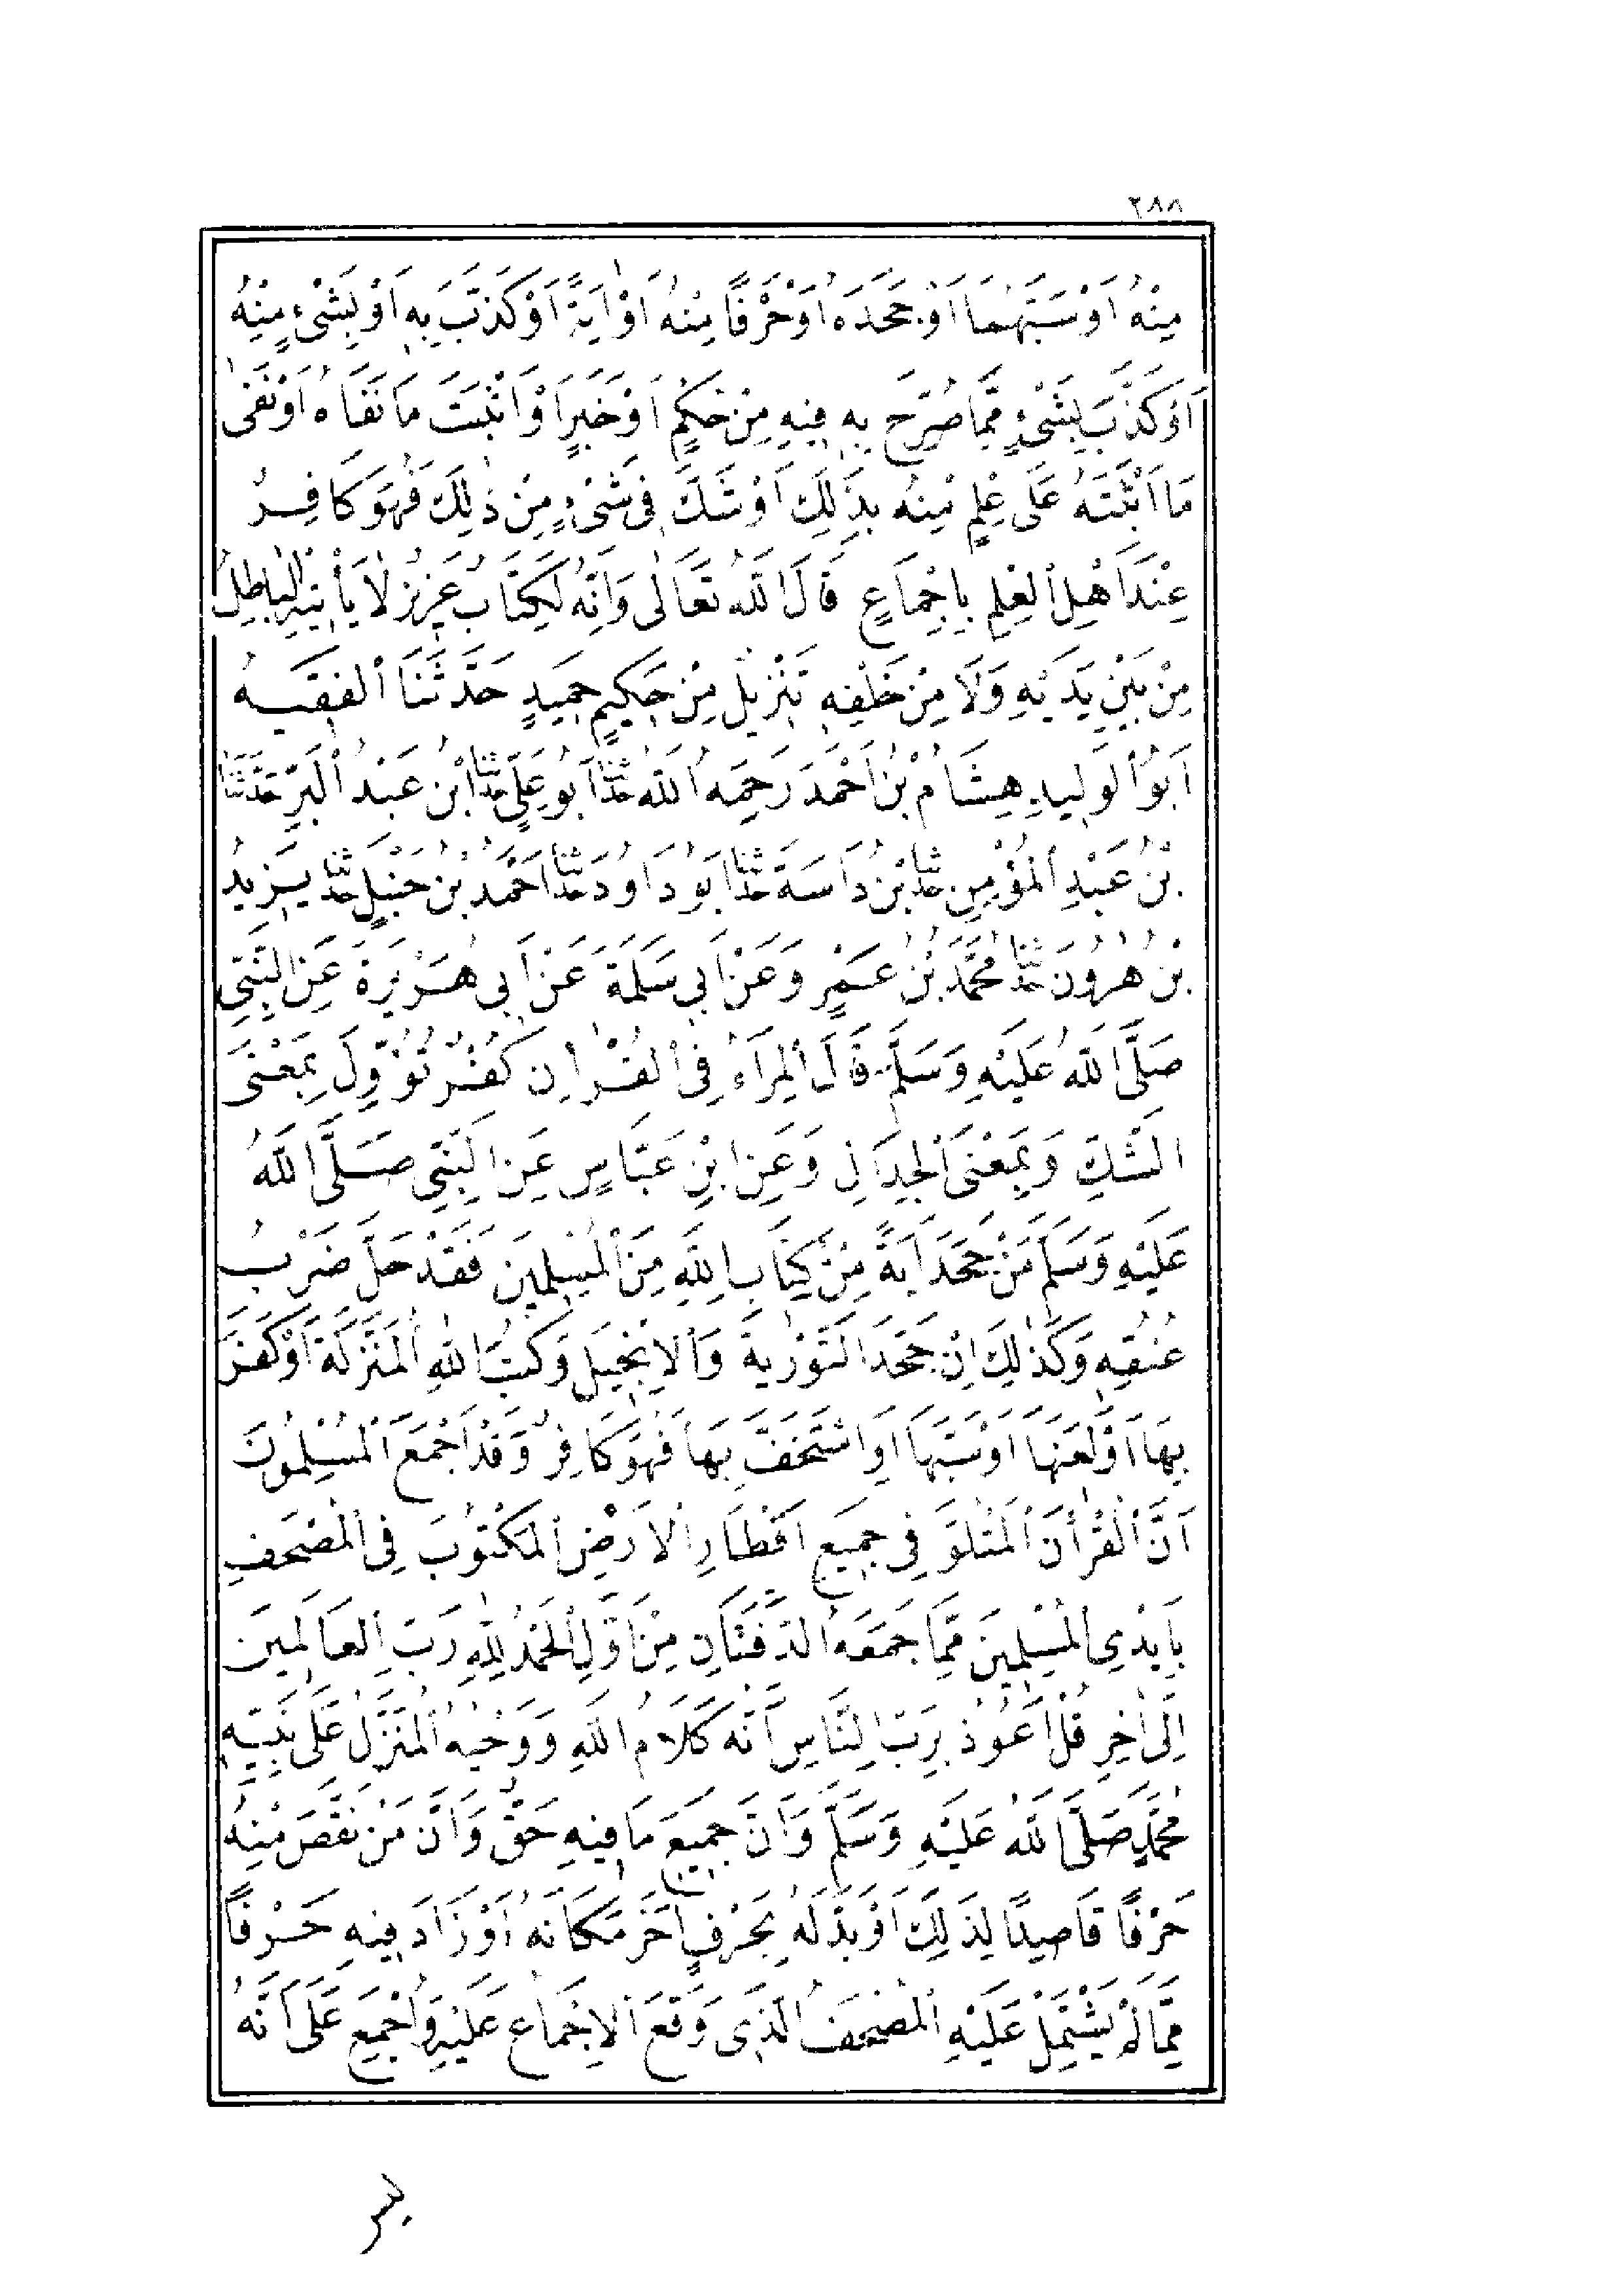 ٢٨٨
مِنْهُ اَوْ سَبَّهُمَا اَوْ جَحَدَهُ اَوْ حَرْفًا مِنْهُ اَوْ اٰيَةً اَوْ كَذَّبَ بِهِ اَوْ بِشَىْءٍ مِنْهُ
اَوْ كَذَّبَ بِشَىْءٍ مِمَّا صُرِّحَ بِهِ فِيهِ مِنْ حُكْمٍ اَوْ خَبَرٍ اَوْ اَثْبَتَ مَا نَفَاهُ اَوْ نَفٰى
مَا اَثْبَتَهُ عَلٰى عِلْمٍ مِنْهُ بِذٰلِكَ اَوْ شَكَّ فِى شَىْءٍ مِنْ ذٰلِكَ فَهُوَ كَافِرٌ
عِنْدَ اَهْلِ الْعِلْمِ بِاِجْمَاعٍ قَالَ اللّٰهُ تَعَالٰى وَاِنَّهُ لَكِتَابٌ عَزِيزٌ لَا يَأْتِيهِ الْبَاطِلُ
مِنْ بَيْنِ يَدَيْهِ وَلَا مِنْ خَلْفِهِ تَنْزِيلٌ مِنْ حَكِيمٍ حَمِيدٍ حَدَّثَنَا الْفَقِيهُ
اَبُو الْوَلِيدِ هِشَامُ بْنُ اَحْمَدَ رَحِمَهُ اللّٰهُ حَدَّثَنَا اَبُو عَلِىٍّ حَدَّثَنَا ابْنُ عَبْدِ الْبَرِّ حَدَّثَنَا
بْنُ عَبْدِ الْمُؤْمِنِ حَدَّثَنَا بْنُ دَاسَةَ حَدَّثَنَا اَبُو دَاوُدَ حَدَّثَنَا اَحْمَدُ بْنُ حَنْبَلٍ حَدَّثَنَا يَزِيدُ
بْنُ هٰرُونَ حَدَّثَنَا مُحَمَّدُ بْنُ عَمْرٍ وَعَنْ اَبِى سَلَمَةَ عَنْ اَبِى هُرَيْرَةَ عَنِ النَّبِىِّ
صَلَّى اللّٰهُ عَلَيْهِ وَسَلَّمَ قَالَ الْمِرَاءُ فِى الْقُرْاٰنِ كُفْرٌ تُؤُوِّلَ بِمَعْنَى
الشَّكِّ وَبِمَعْنَى الْجِدَالِ وَعَنِ ابْنِ عَبَّاسٍ عَنِ النَّبِىِّ صَلَّى اللّٰهُ
عَلَيْهِ وَسَلَّمَ مَنْ جَحَدَ اٰيَةً مِنْ كِتَابِ اللّٰهِ مِنَ الْمُسْلِمِينَ فَقَدْ حَلَّ ضَرْبُ
عُنُقِهِ وَكَذٰلِكَ اِنْ جَحَدَ التَّوْرٰيةَ وَالْاِنْجِيلَ وَكُتُبَ اللّٰهِ الْمُنَزَّلَةَ اَوْ كَفَرَ
بِهَا اَوْ لَعَنَهَا اَوْ سَبَّهَا اَوِ اسْتَخَفَّ بِهَا فَهُوَ كَافِرٌ وَقَدْ اَجْمَعَ الْمُسْلِمُونَ
اَنَّ الْقُرْأٰنَ الْمَتْلُوَّ فِى جَمِيعِ اَقْطَارِ الْاَرْضِ الْمَكْتُوبَ فِى الْمُصْحَفِ
بِاَيْدِى الْمُسْلِمِينَ مِمَّا جَمَعَهُ الدَّفَّتَانِ مِنْ اَوَّلِ اَلْحَمْدُ لِلّٰهِ رَبِّ الْعَالَمِينَ
اِلٰى اٰخِرِ قُلْ اَعُوذُ بِرَبِّ النَّاسِ اَنَّهُ كَلَامُ اللّٰهِ وَوَحْيُهُ الْمُنَزَّلُ عَلٰى نَبِيِّهِ
مُحَمَّدٍ صَلَّى اللّٰهُ عَلَيْهِ وَسَلَّمَ وَاَنَّ جَمِيعَ مَا فِيهِ حَقٌّ وَاَنَّ مَنْ نَقَصَ مِنْهُ
حَرْفًا قَاصِدًا لِذٰلِكَ اَوْ بَدَّلَهُ بِحَرْفٍ اٰخَرَ مَكَانَهُ اَوْ زَادَ فِيهِ حَرْفًا
مِمَّا لَمْ يَشْتَمِلْ عَلَيْهِ الْمُصْحَفُ الَّذِى وَقَعَ الْاِجْمَاعُ عَلَيْهِ وَاُجْمِعَ عَلٰى اَنَّهُ